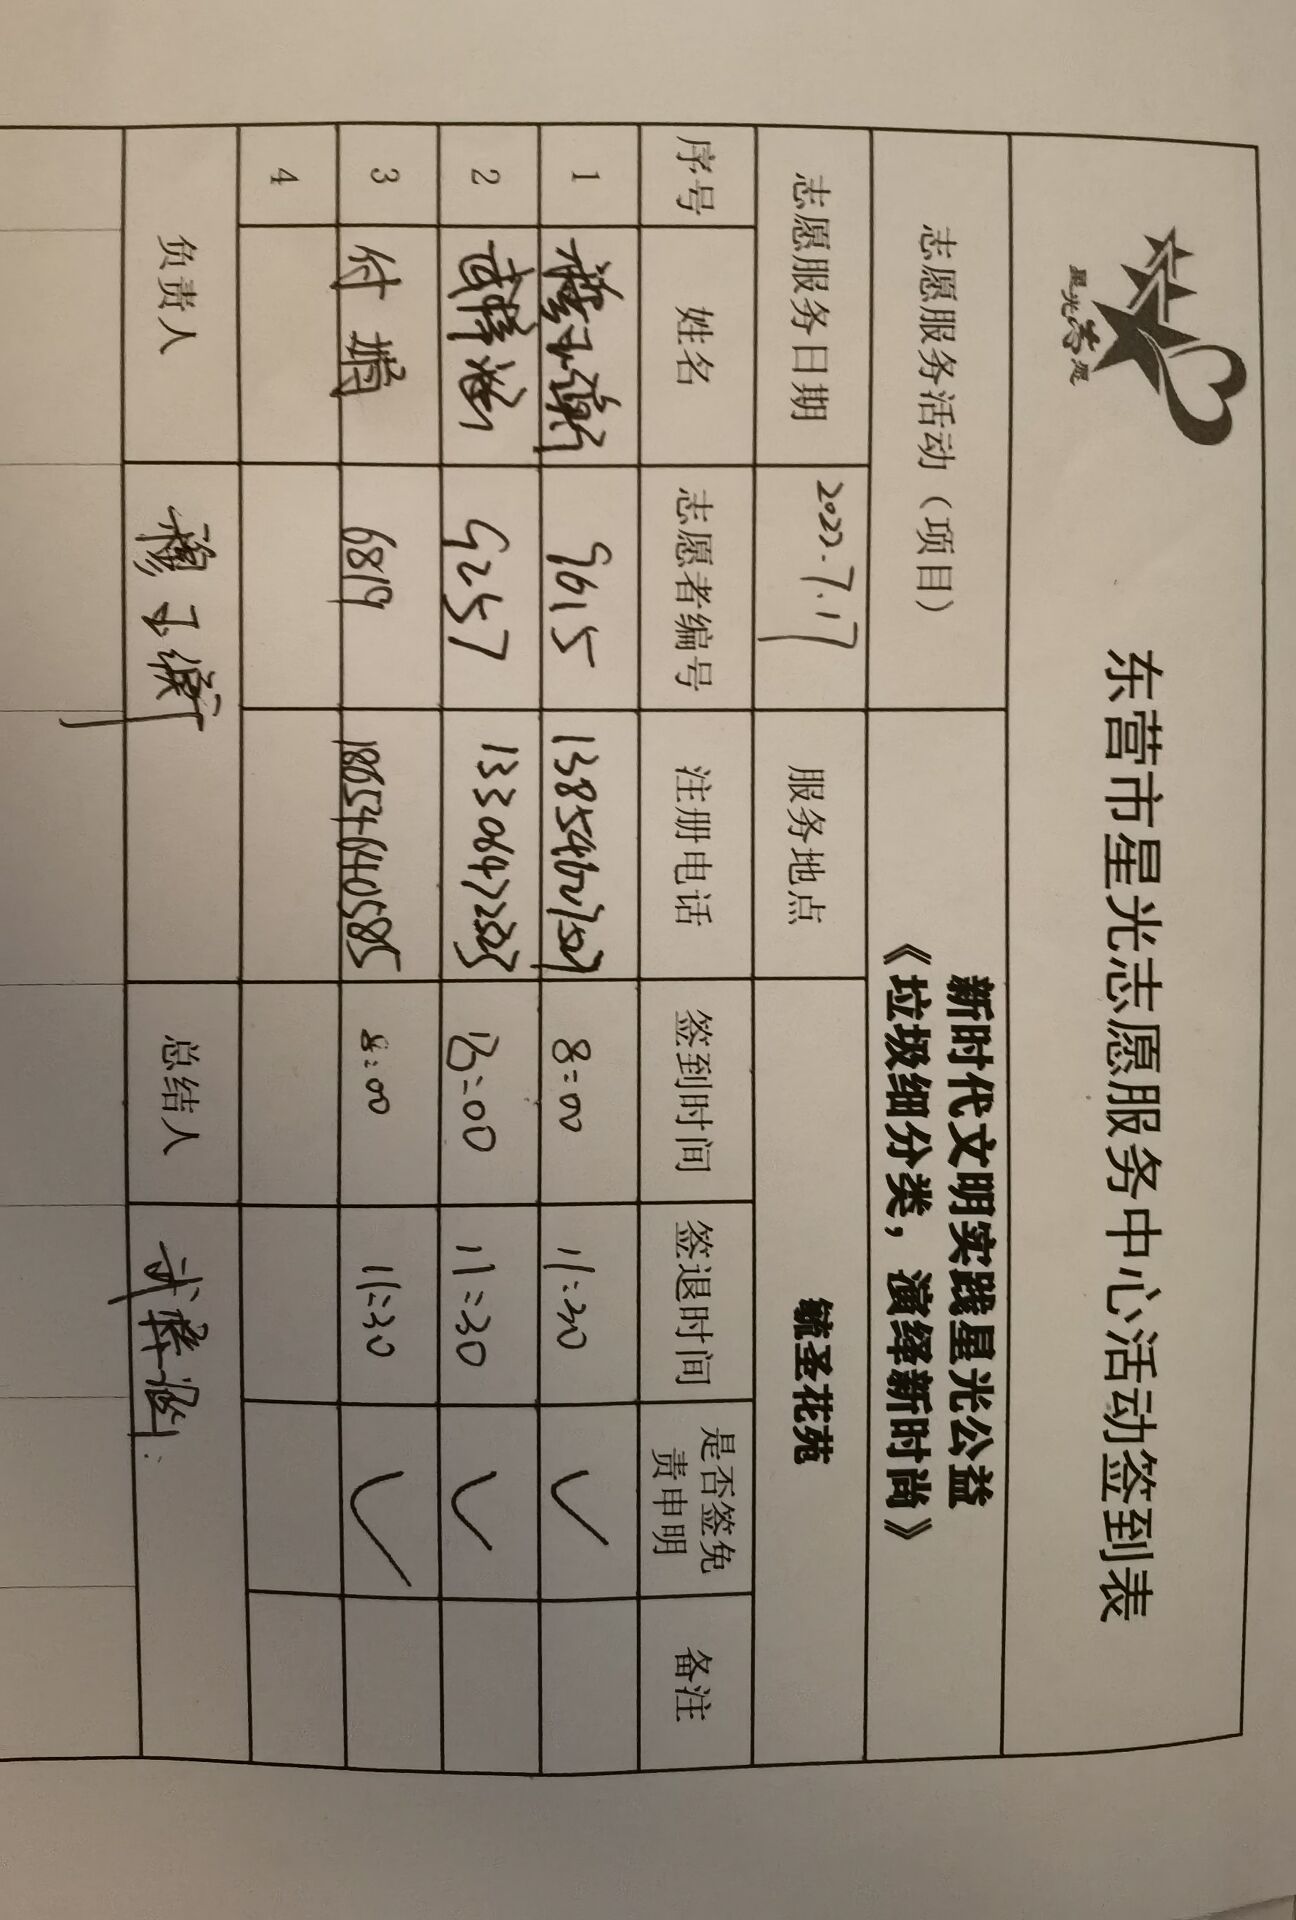 星光志愿
东营市星光志愿服务中心活动签到表
志愿服务活动（项目）
新时代文明实践星光公益
《垃圾细分类，演绎新时尚》
志愿服务日期 2022.7.17 服务地点 毓圣花苑
序号 姓名 志愿者编号 注册电话 签到时间 签退时间 是否签免责申明 备注
1 9615 8:00 11:30 ✓
2 5257 11:30 ✓
3 付鹏 6819 18654640585 8:00 11:30 ✓
4
负责人 总结人